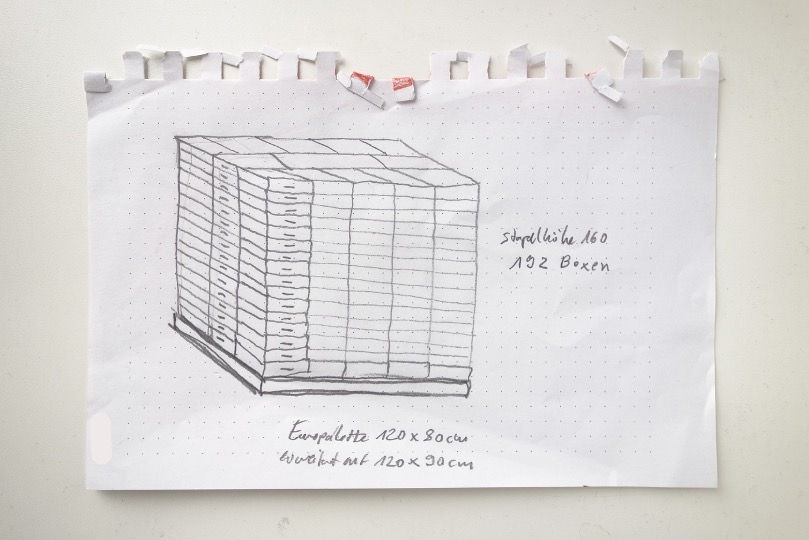 Stapelhöhe 160
192 Boxen
Europalette 120 x 80 cm
erweitert auf 120 x 90 cm